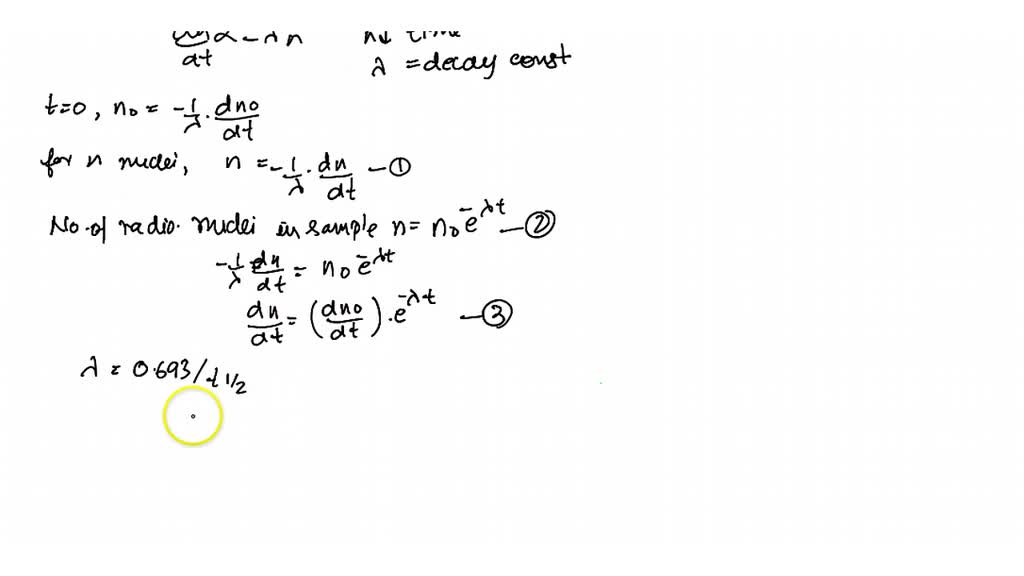 dt
λ = decay const
t=0, n0 = -1/λ . dn0/dt
for n nuclei, n = -1/λ . dn/dt — ①
No. of radio. nuclei in sample n = n0 e^-λt — ②
-1/λ dn/dt = n0 e^-λt
dn/dt = (dn0/dt) . e^-λt — ③
λ = 0.693/t 1/2